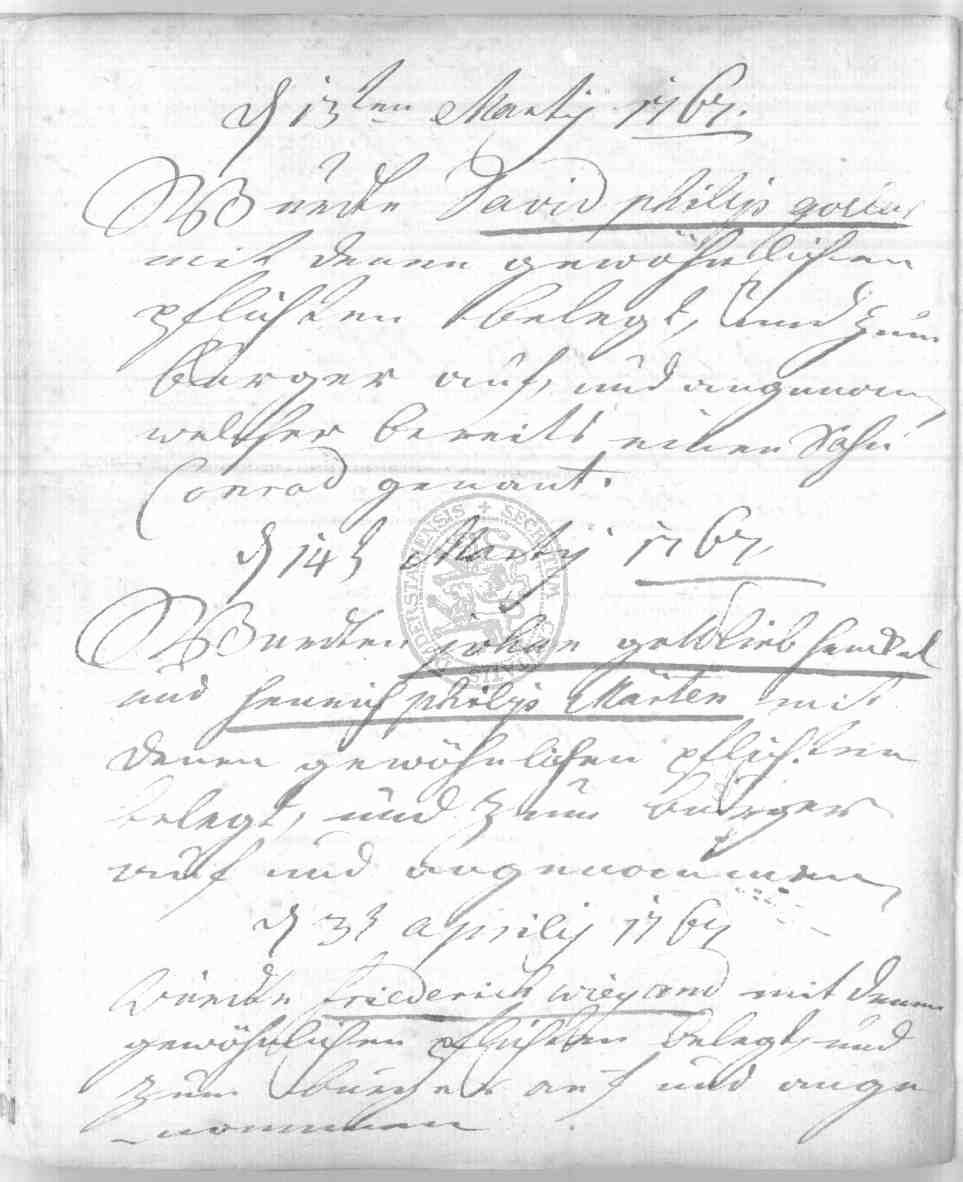 d 13ten Martij 1767.
Wurde David philip
mit denen gewöhnlichen
pflichten belegt, und zum
Burger auf, und angenom
welcher bereits einen Sohn
Conrad genant.
d 14t Martij 1767.
Wurden johan gottlieb henckel
und henrich philip Marten mit
denen gewöhnlichen pflichten
belegt, und zum burger
auf und angenommen
d 3t aprilij 1767
Wurde friederich wieg and mit denen
gewöhnlichen pflichten belegt, und
zum burger auf und ange
nommen
SECRETUM